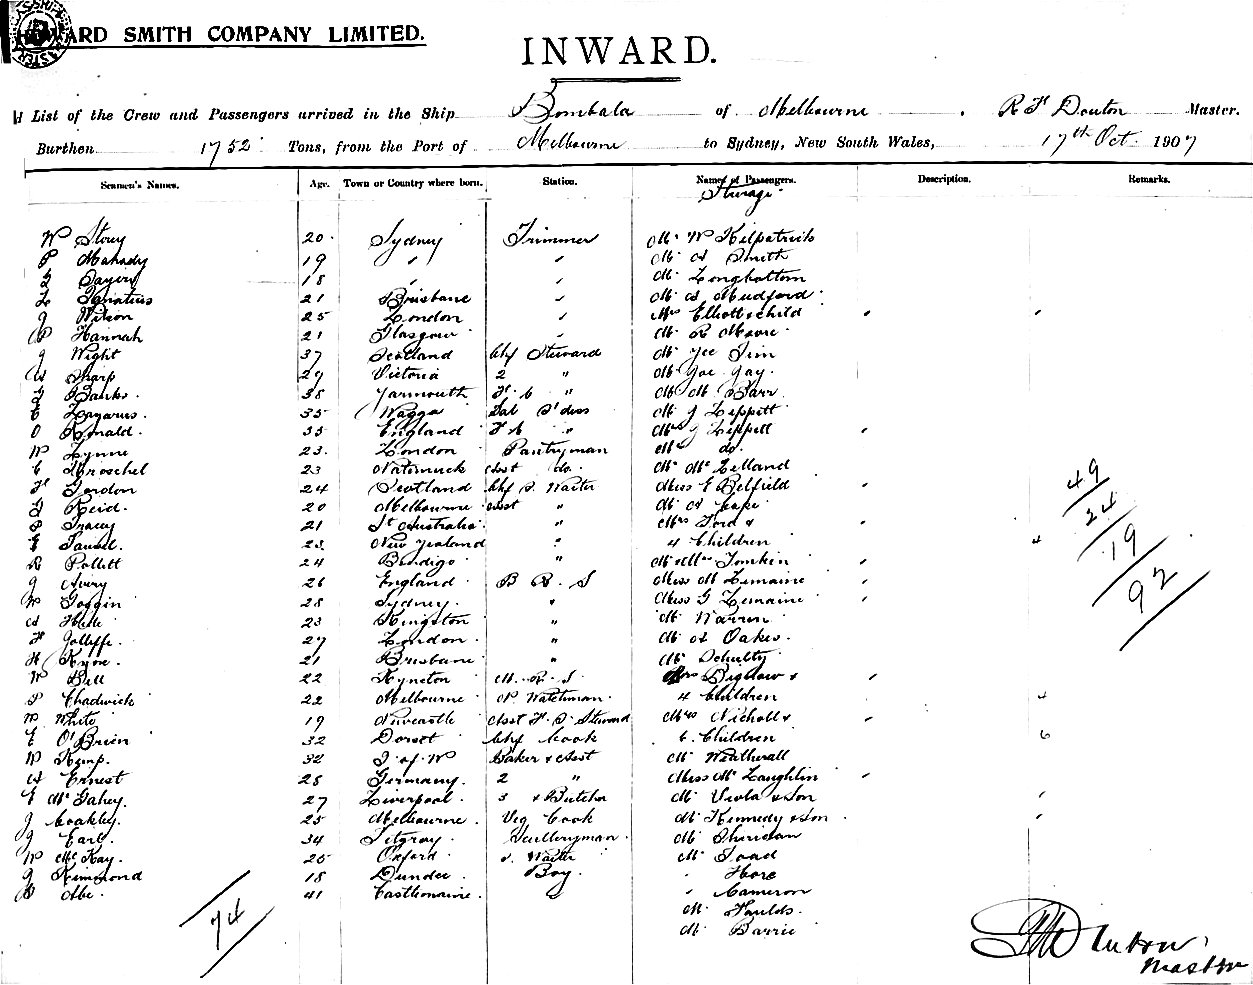 WARD SMITH COMPANY LIMITED.
INWARD.
List of the Crew and Passengers arrived in the Ship Bombala of Melbourne . R H Douton Master.
Burthen 1752 Tons, from the Port of Melbourne to Sydney, New South Wales, 17th Oct. 1907
Seamen's Names. Age. Town or Country where born. Station. Names of Passengers. Description. Remarks.
Steerage
W Storey 20 Sydney Trimmer Mr W Kilpatrick
P Mahady 19 " " Mr A Smith
18 " " Mr Longbottom
L Ignatius 21 Brisbane " Mr A Mudford
J Wilson 25 London " Mrs Elliott & child
P Hannah 21 Glasgow " Mr R Moore
J Wight 37 Scotland Chf Steward Mr Yee Tim
W Sharp 29 Victoria 2 " Mr Goe Gay
Banks 38 Yarmouth F. C " Mr M Barr
C Lazarus 35 Wagga Sal S'dess Mr J Lippitt
O Ronald 35 England F C " Mrs J Lippitt
W Lynne 23 London Pantryman do.
C Hroschel 23 Natimuck Asst do. Mr Mc Lelland
H Gordon 24 Scotland Chf S. Waiter Miss E Belfield
Reid 20 Melbourne Asst " Mr A Cape
P Tracey 21 St Australia " Mrs Ford &
E 23 New Zealand " 4 Children 4
R Pollett 24 Bendigo " Mr & Mrs Tomkin
J Avery 26 England B R. S Miss M Lemaine
W Goggin 28 Sydney " Miss G Lemaine
A Hede 23 Kingston " Mr Warren
H Jolliffe 27 London " Mr A Oakes
H Knox 21 Brisbane " Mr Schultz
W Bell 22 Kyneton M. R. S Mrs Bignow &
P Chadwick 22 Melbourne N. Watchman 4 Children 4
W White 19 Newcastle Asst F. S. Steward Mrs Nicholl &
E O'Brien 32 Dorset Chf Cook 6 Children 6
W Kemp 32 I of W Baker & Asst Mr Weatherall
A Ernest 28 Germany 2 " Miss Mc Laughlin
E McGahey 27 Liverpool 3 & Butcher Mr Viola & Son
J Coakley 25 Melbourne Veg Cook Mr Kennedy & Son
J Earl 34 Fitzroy Sculleryman Mr Sheridan
W McKay 25 Oxford S. Waiter Mr Toad
J Kimmond 18 Dundee Boy " Hore
Abe 41 Castlemaine " " Cameron
Mr Faulds
Mr Barrie
49
24
19
92
74
Douton
Master